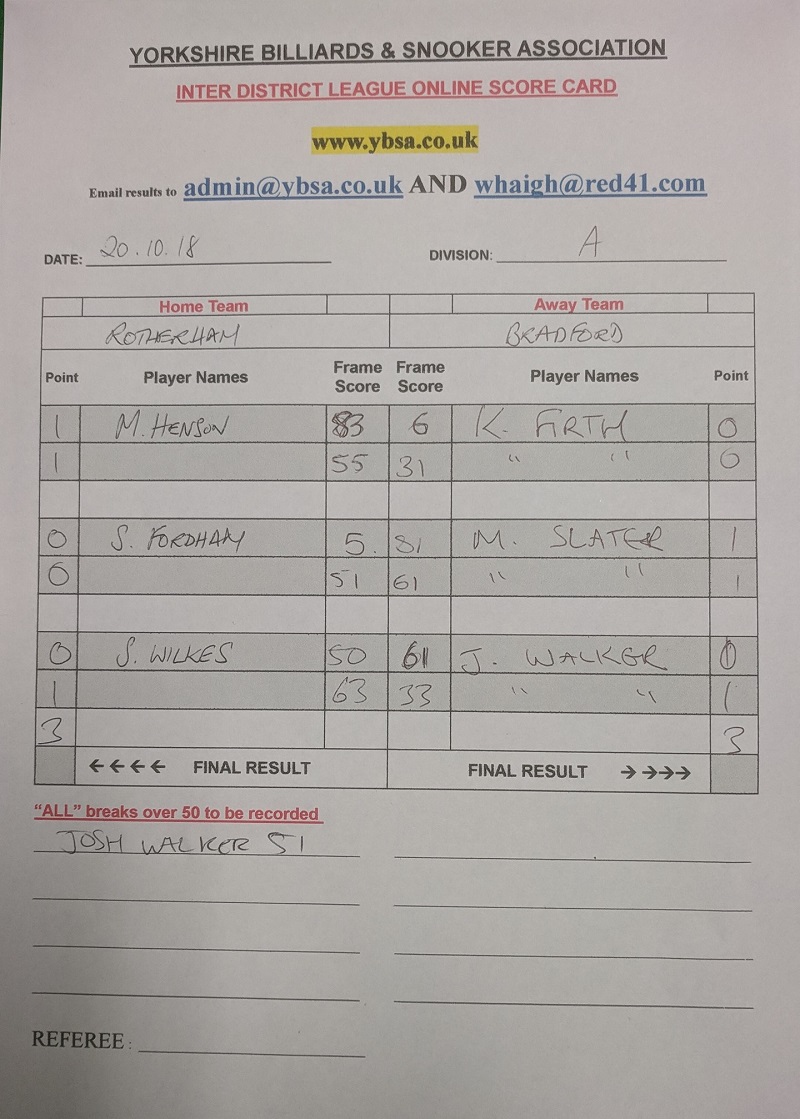 YORKSHIRE BILLIARDS & SNOOKER ASSOCIATION
INTER DISTRICT LEAGUE ONLINE SCORE CARD
www.ybsa.co.uk
Email results to admin@ybsa.co.uk AND whaigh@red41.com
DATE: 20.10.18 DIVISION: A
Home Team Away Team
ROTHERHAM BRADFORD
Point Player Names Frame Score Frame Score Player Names Point
1 M. HENSON 83 6 K. FIRTH 0
1 55 31 " " 0
0 S. FORDHAM 5. 81 M. SLATER 1
0 51 61 " " 1
0 S. WILKES 50 61 J. WALKER
1 63 33 " " 1
3 3
←←←← FINAL RESULT FINAL RESULT →→→→
"ALL" breaks over 50 to be recorded
JOSH WALKER 51
REFEREE: